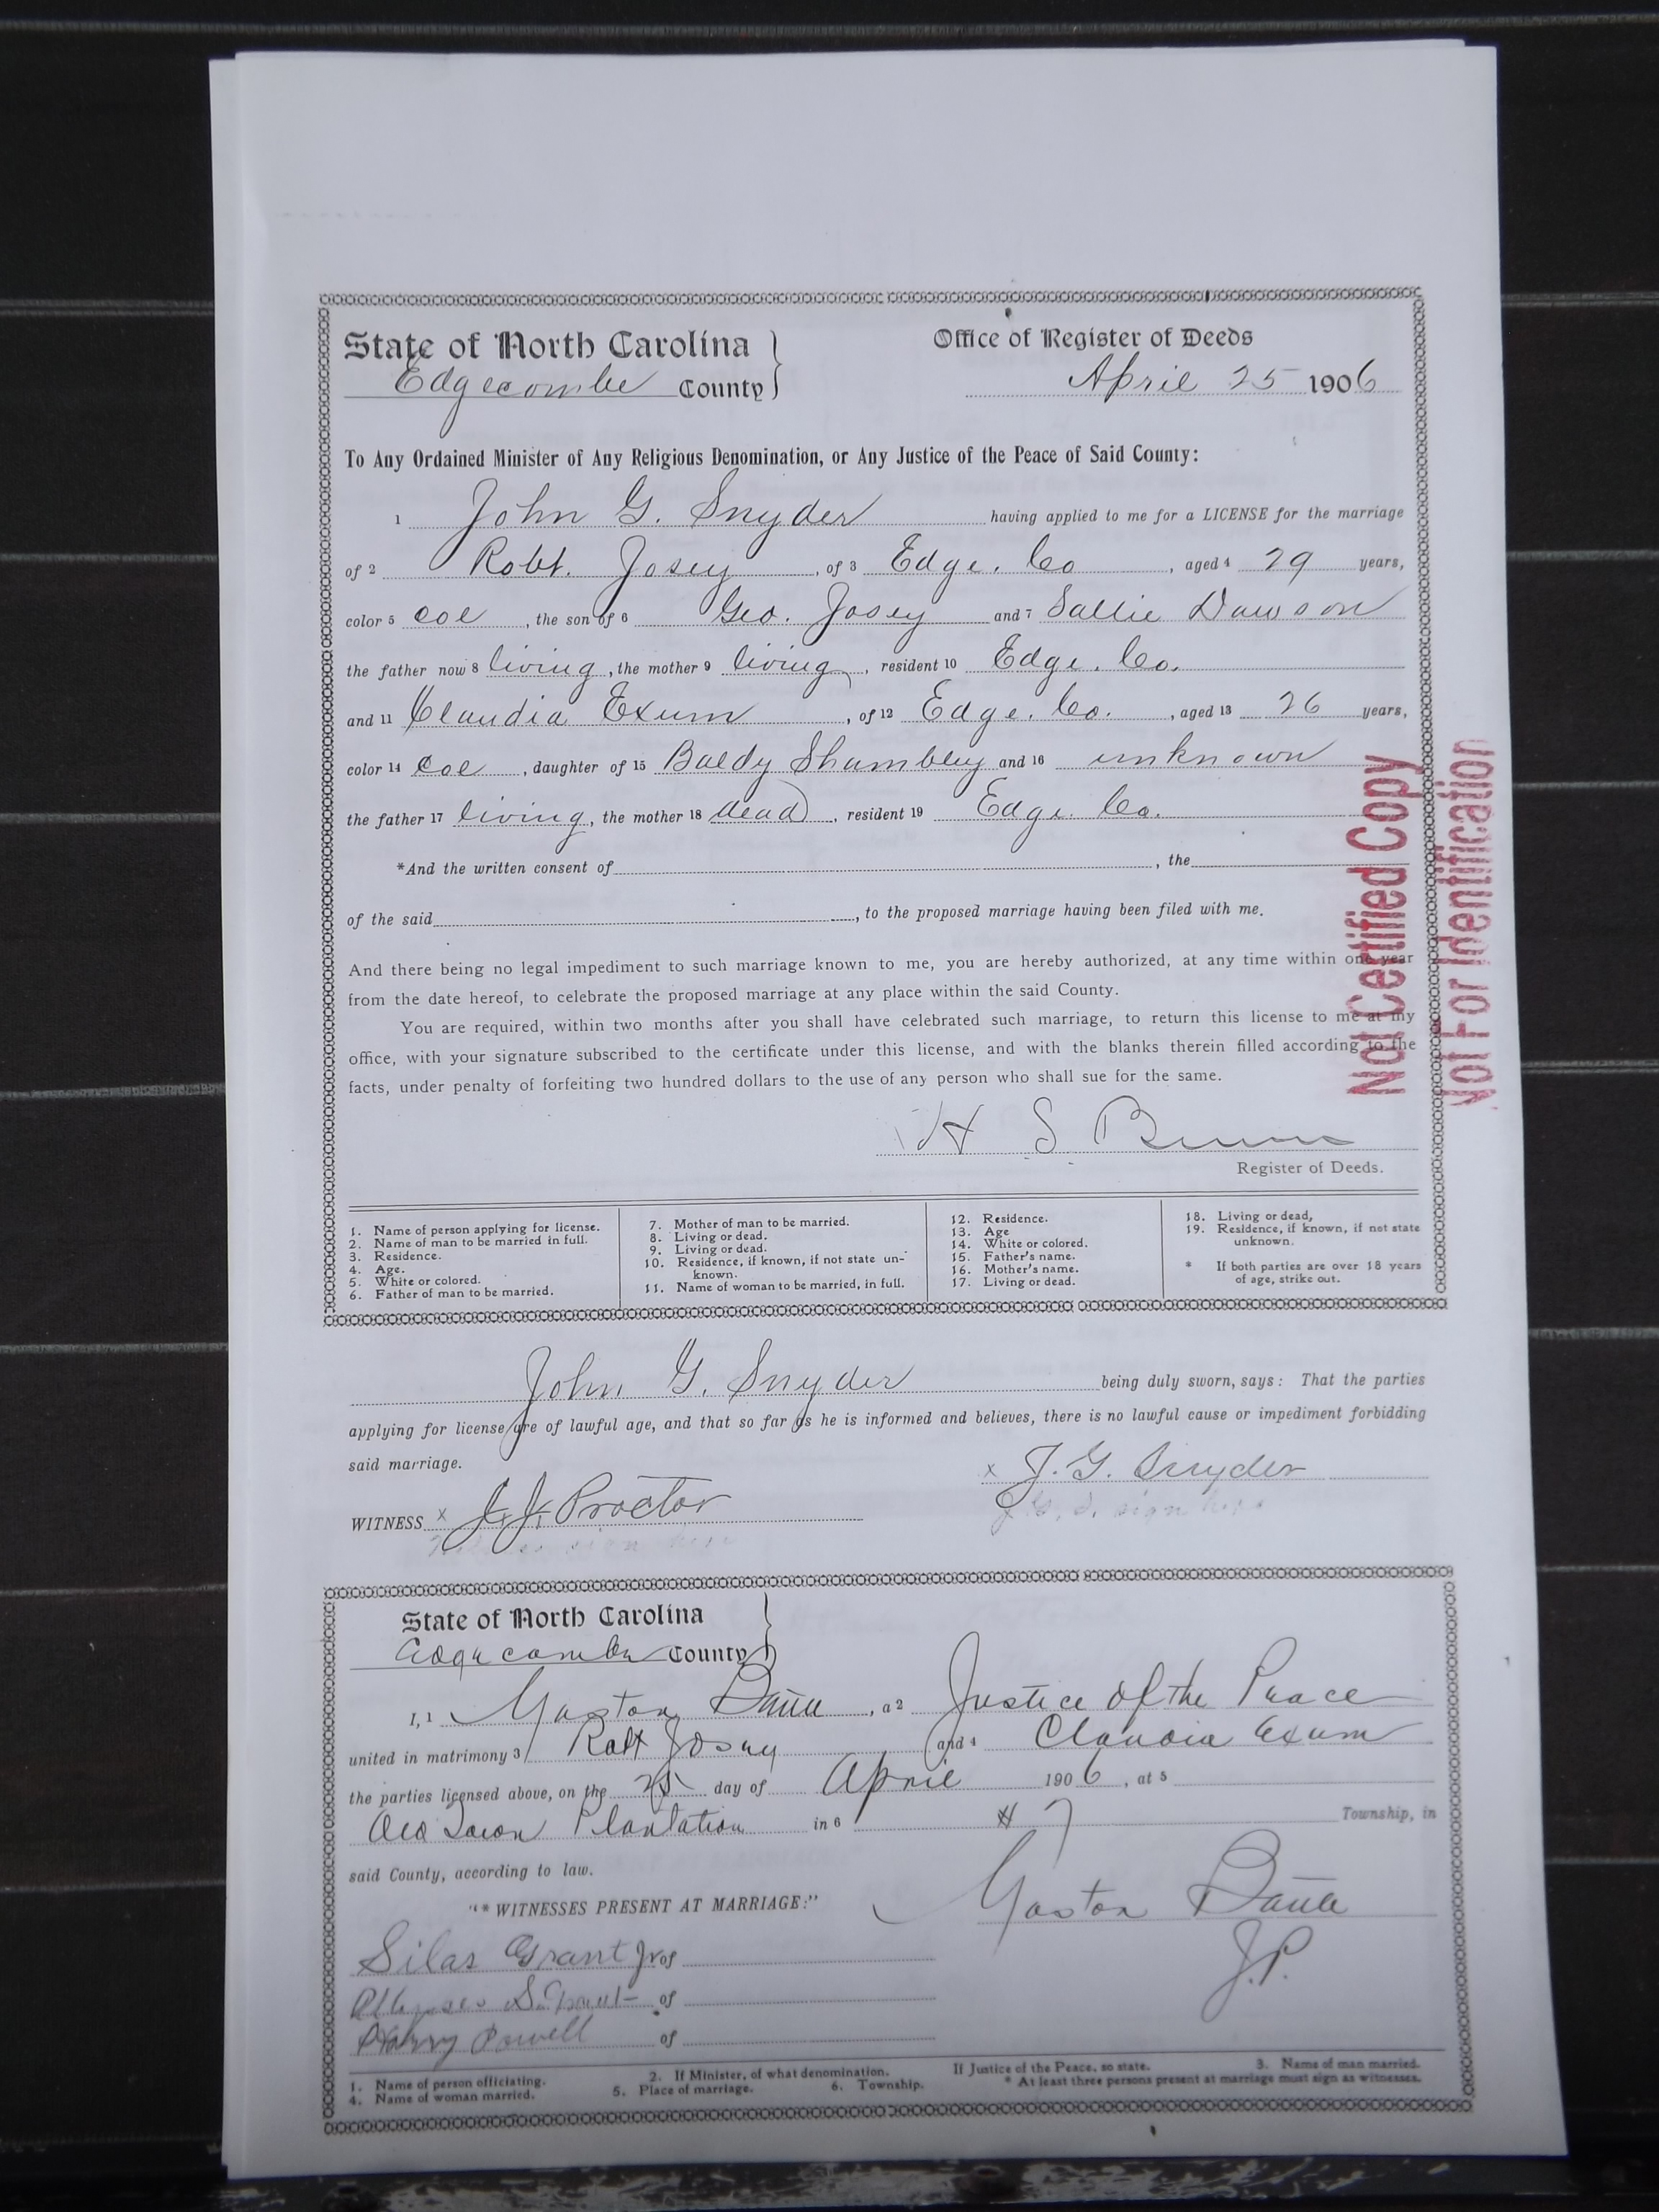 State of North Carolina
Edgecombe County
Office of Register of Deeds
April 25 1906
To Any Ordained Minister of Any Religious Denomination, or Any Justice of the Peace of Said County:
1 John G. Snyder having applied to me for a LICENSE for the marriage
of 2 Robt. Josey, of 3 Edge. Co, aged 4 29 years,
color 5 col, the son of 6 Geo. Josey and 7 Sallie Dawson
the father now 8 living, the mother 9 living, resident 10 Edge. Co.
and 11 Claudia Exum, of 12 Edge. Co., aged 13 26 years,
color 14 col, daughter of 15 Baldy Shambley and 16 unknown
the father 17 living, the mother 18 dead, resident 19 Edge. Co.
*And the written consent of, the
of the said, to the proposed marriage having been filed with me.
And there being no legal impediment to such marriage known to me, you are hereby authorized, at any time within one year
from the date hereof, to celebrate the proposed marriage at any place within the said County.
You are required, within two months after you shall have celebrated such marriage, to return this license to me at my
office, with your signature subscribed to the certificate under this license, and with the blanks therein filled according to the
facts, under penalty of forfeiting two hundred dollars to the use of any person who shall sue for the same.
H S Bunn
Register of Deeds.
Not Certified Copy
Not For Identification
1. Name of person applying for license.
2. Name of man to be married in full.
3. Residence.
4. Age.
5. White or colored.
6. Father of man to be married.
7. Mother of man to be married.
8. Living or dead.
9. Living or dead.
10. Residence, if known, if not state un-
known.
11. Name of woman to be married, in full.
12. Residence.
13. Age
14. White or colored.
15. Father's name.
16. Mother's name.
17. Living or dead.
18. Living or dead,
19. Residence, if known, if not state
unknown.
* If both parties are over 18 years
of age, strike out.
John G. Snyder being duly sworn, says: That the parties
applying for license are of lawful age, and that so far as he is informed and believes, there is no lawful cause or impediment forbidding
said marriage.
x J. G. Snyder
J. G. S. sign here
WITNESS x J. J. Proctor
sign here
State of North Carolina
Edgecombe County
I, 1 Gaston, a 2 Justice of the Peace
united in matrimony 3 Robt Josey and 4 Claudia Exum
the parties licensed above, on the 25 day of April 1906, at 5
Old Plantation in 6 # 7 Township, in
said County, according to law.
"* WITNESSES PRESENT AT MARRIAGE:"
Gaston
J.P.
Silas Grant Jr of
of
Harry Powell of
1. Name of person officiating. 2. If Minister, of what denomination. If Justice of the Peace, so state. 3. Name of man married.
4. Name of woman married. 5. Place of marriage. 6. Township. * At least three persons present at marriage must sign as witnesses.